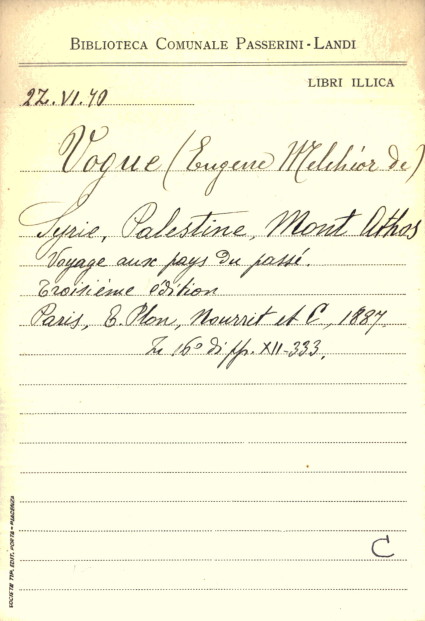 BIBLIOTECA COMUNALE PASSERINI-LANDI
LIBRI ILLICA
2Z.VI.40
Vogue (Eugene Melchior de)
Syrie, Palestine, Mont Athos
Voyage aux pays du passé.
Troisième édition
Paris, E. Plon, Nourrit et C, 1887.
In 16° di pp. XII-333.
C
SOCIETÀ TIP. EDIT. PORTA - PIACENZA